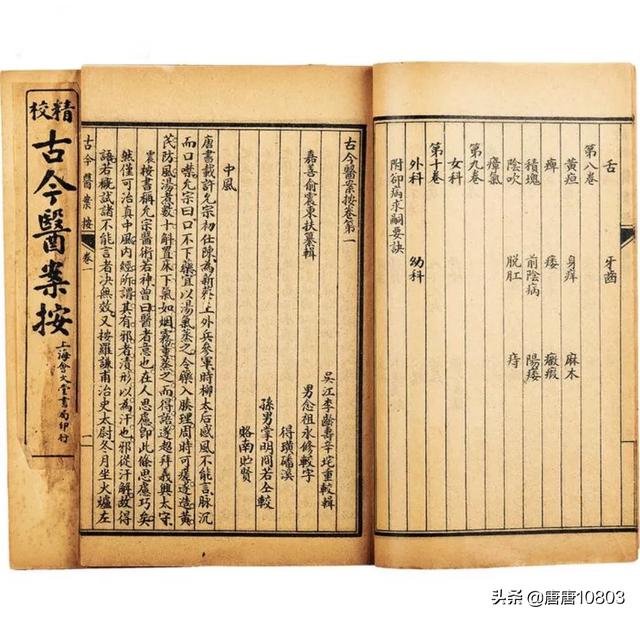 精校
古今醫案按
上海會文堂書局印行
舌 牙齒
第八卷
黃疸 身痒 麻木
痺 痿 癥瘕
積塊 前陰病 陽痿
陰吹 脫肛 痔
瘴氣
第九卷
女科
第十卷
外科 幼科
附卻病求嗣要訣
古今醫案按卷第一
吳江李齡壽辛垞重較輯
嘉善俞震東扶纂輯
男念祖永修較字
得璜磻溪
孫男掌明間若仝較
賂南貯賢
中風
唐書載許允宗初仕陳為新蔡王外兵參軍時柳太后感風不能言脉沉
而口噤允宗曰口不下藥宜以湯氣蒸之令藥入腠理周時可瘥遂造黃
芪防風湯煮數十斛置床下氣如烟霧薰蒸之而得語遂超拜義興太守
震按書稱允宗醫術若神曾曰醫者意也在人思慮卽此條思慮巧矣
然僅可治真中風內經所謂其有邪者漬形以為汗也邪從汗解故得
語若概試諸不能言者决無效又按羅謙甫治史太尉冬月坐火爐左
古今醫案按 卷一 一
头条 @唐唐10803